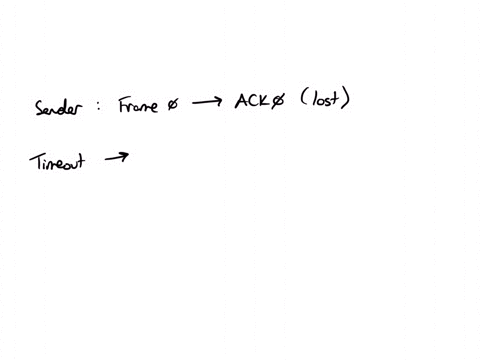 Sender : Frame 0 → ACK0 (lost)
Timeout →